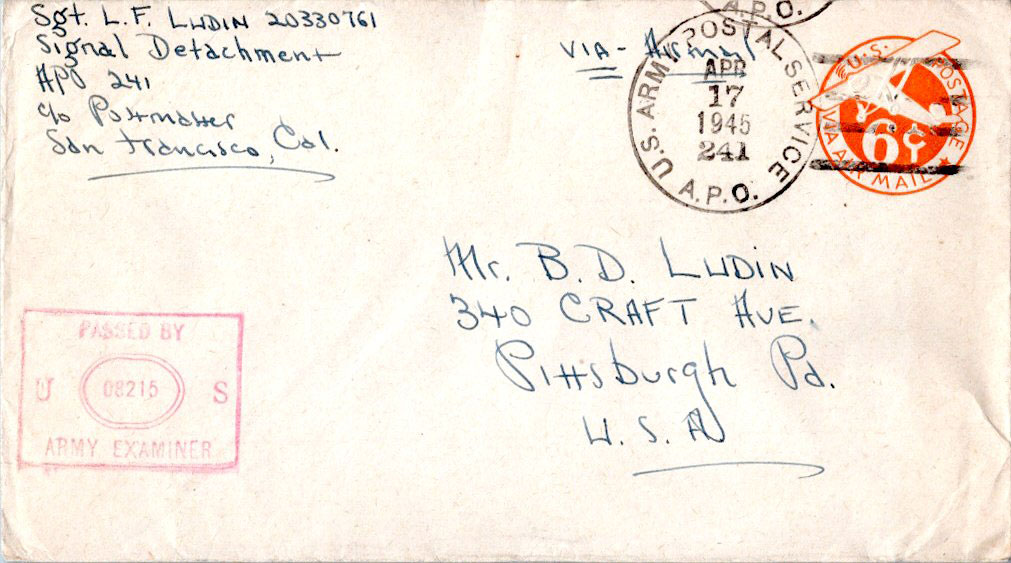 Sgt. L. F. LUDIN 20330761
Signal Detachment
APO 241
c/o Postmaster
San Francisco, Cal.
VIA - Airmail
A.P.O.
U.S. ARMY POSTAL SERVICE
APR
17
1945
241
A.P.O.
U.S. POSTAGE
6¢
VIA AIR MAIL
Mr. B. D. LUDIN
340 CRAFT AVE.
Pittsburgh Pa.
U. S. A
PASSED BY
U 08215 S
ARMY EXAMINER